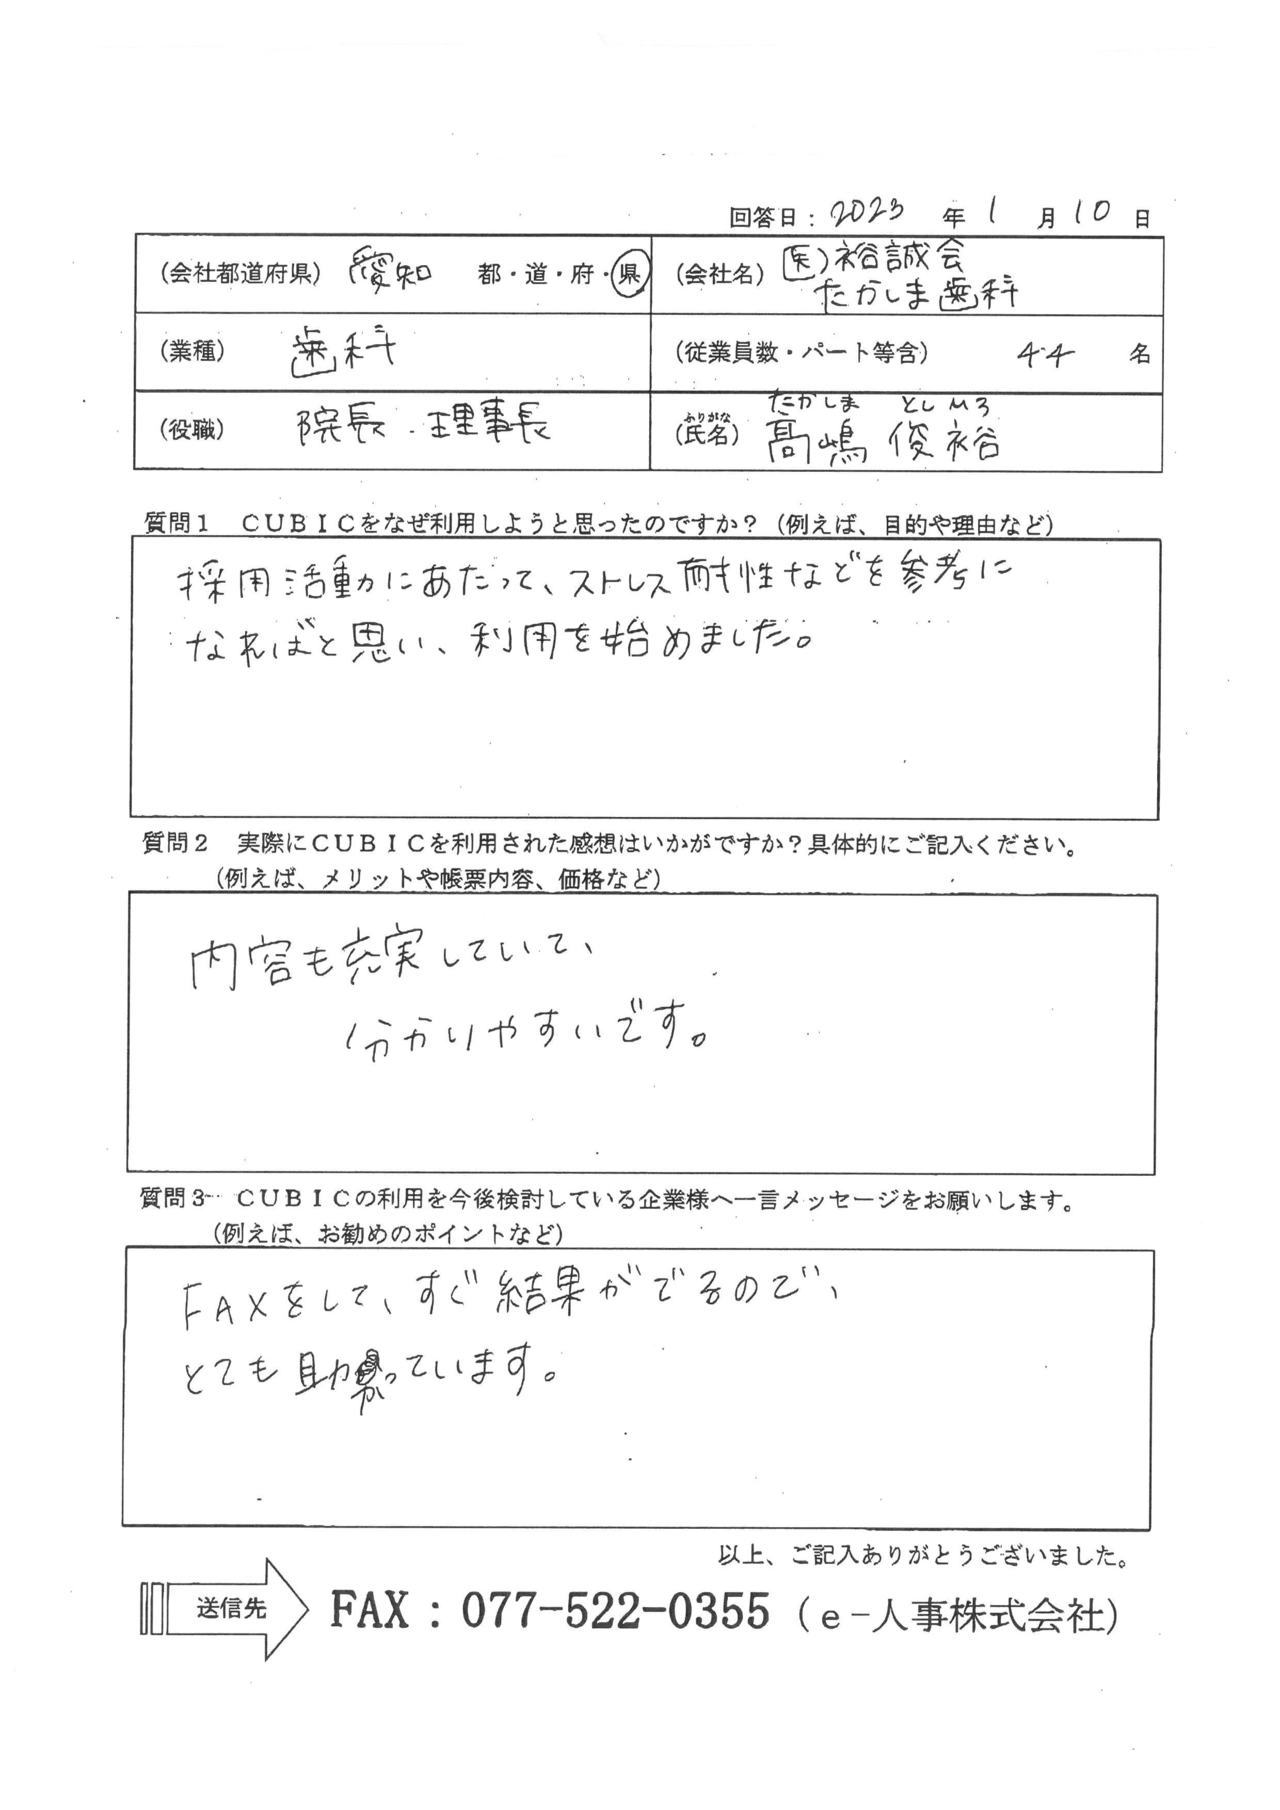 回答日：2023 年 1 月 10 日
(会社都道府県) 愛知 都・道・府・県 (会社名) 医)裕誠会
たかしま歯科
(業種) 歯科 (従業員数・パート等含) 44 名
たかしま としひろ
(役職) 院長・理事長 ふりがな (氏名)髙嶋 俊裕
質問１ ＣＵＢＩＣをなぜ利用しようと思ったのですか？（例えば、目的や理由など）
採用活動にあたって、ストレス耐性などを参考に
なればと思い、利用を始めました。
質問２ 実際にＣＵＢＩＣを利用された感想はいかがですか？具体的にご記入ください。
（例えば、メリットや帳票内容、価格など）
内容も充実していて、
分かりやすいです。
質問３ ＣＵＢＩＣの利用を今後検討している企業様へ一言メッセージをお願いします。
（例えば、お勧めのポイントなど）
FAXをして、すぐ結果がでるので、
とても助かっています。
以上、ご記入ありがとうございました。
送信先 FAX：077-522-0355（ｅ-人事株式会社）